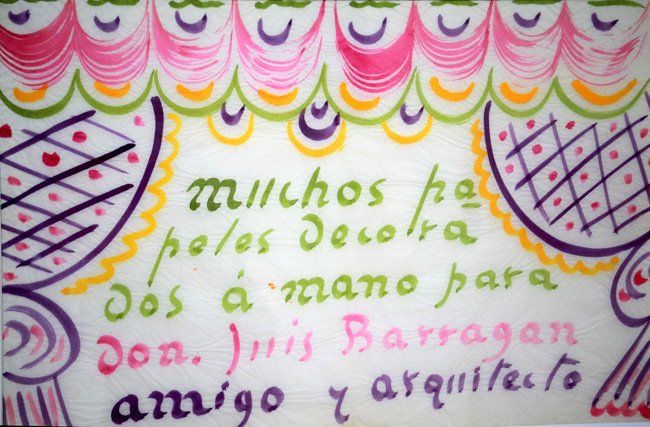 muchos pa
peles decora
dos á mano para
don. Luis Barragan
amigo y arquitecto